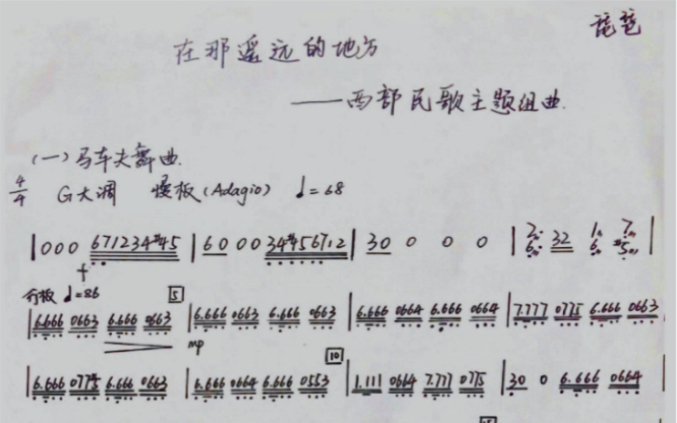 琵琶
在那遥远的地方
——西部民歌主题组曲
(一)马车夫舞曲
4/4 G大调 慢板(Adagio) ♩=68
|000 671234#45 |60 00 34#456712 |30 0 0 0 | 2· 6· 32 1· 6· 7· #5· |
行板 ♩=86 5
|6.666 0663 6.666 0663 |6.666 0663 6.666 0663 |6.666 0664 6.666 0664 |7.777 0775 6.666 0663
mp
10
|6.666 0775 6.666 0663 |6.666 0664 6.666 0553 |1.111 0664 7.777 0775 |30 0 6.666 0664 |